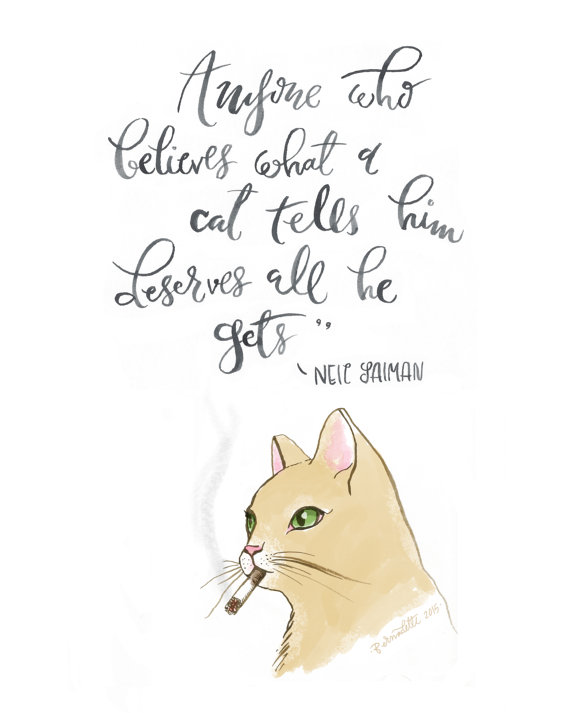 Anyone who
believes what a
cat tells him
deserves all he
gets"
~ NEIL GAIMAN
Bernadette 2015.